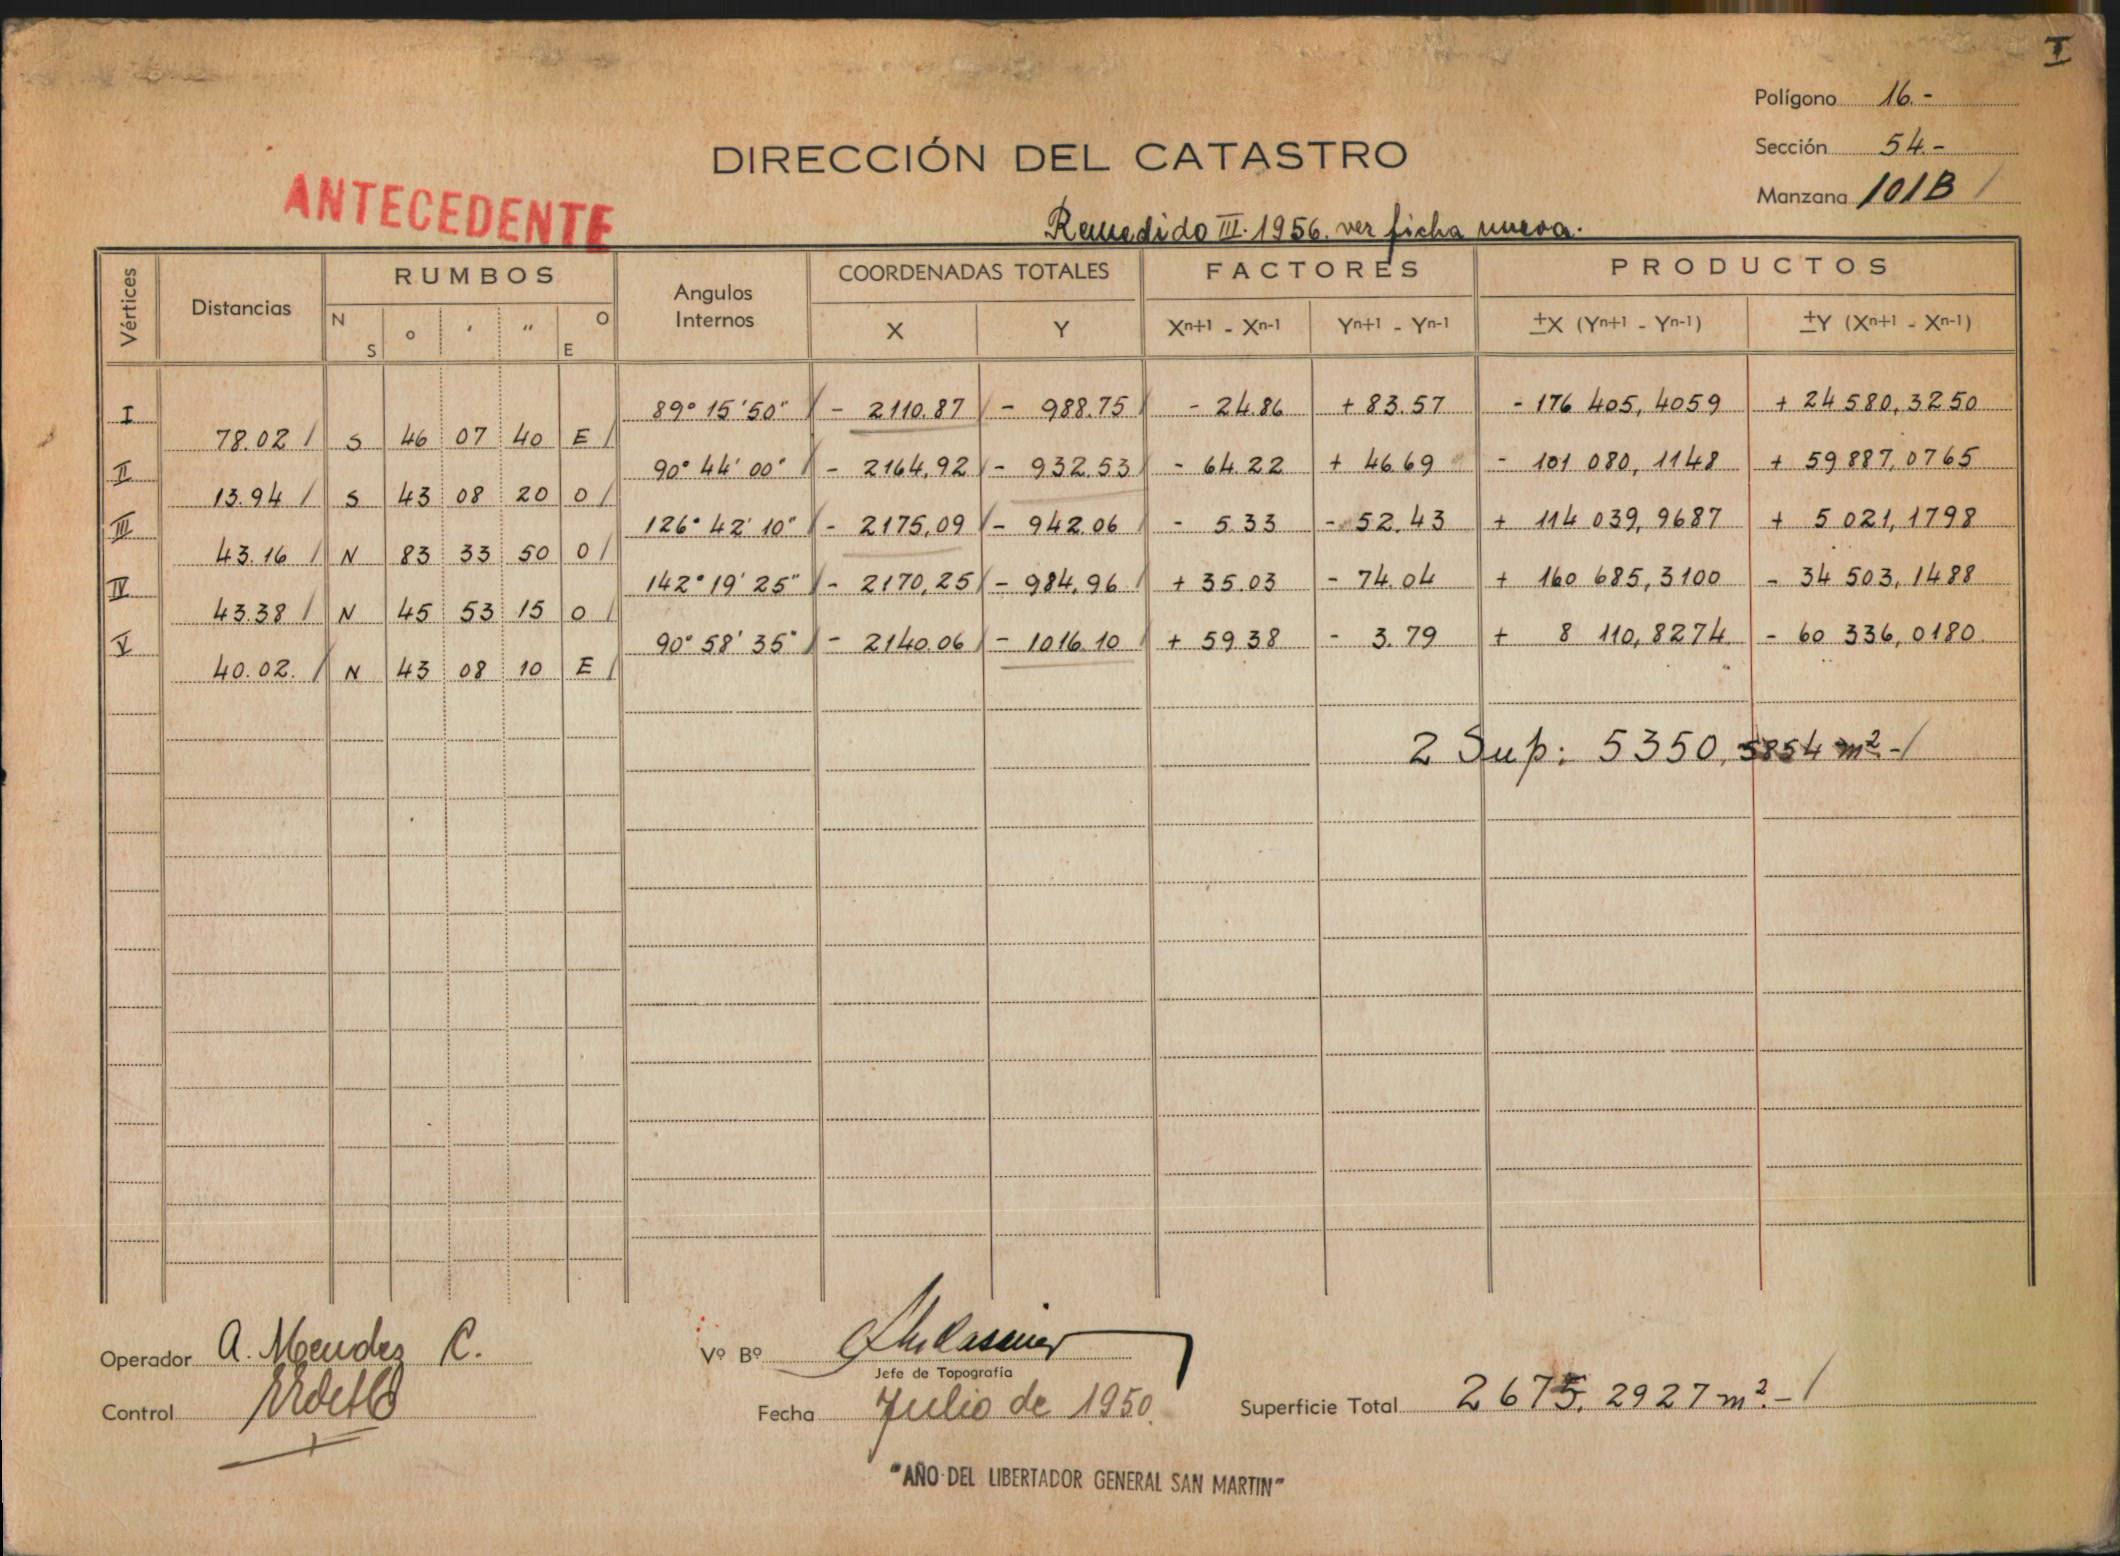 I
Polígono 16.-
Sección 54.-
Manzana 101B /
DIRECCIÓN DEL CATASTRO
ANTECEDENTE
Remedido III. 1956. ver ficha nueva.
Vértices Distancias RUMBOS Angulos Internos COORDENADAS TOTALES FACTORES PRODUCTOS
N S ° ' " O E X Y Xn+1 - Xn-1 Yn+1 - Yn-1 ±X (Yn+1 - Yn-1) ±Y (Xn+1 - Xn-1)
I 89° 15' 50" / - 2110.87 / - 988.75 / - 24.86 + 83.57 - 176 405,4059 + 24 580,3250
78.02 / S 46 07 40 E /
II 90° 44' 00" / - 2164,92 / - 932.53 - 64.22 + 46.69 - 101 080,1148 + 59 887,0765
13.94 / S 43 08 20 O /
III 126° 42' 10" / - 2175,09 / - 942.06 / - 5.33 - 52.43 + 114 039,9687 + 5 021,1798
43.16 / N 83 33 50 O /
IV 142° 19' 25" / - 2170,25 / - 984,96 / + 35.03 - 74.04 + 160 685,3100 - 34 503,1488
43.38 / N 45 53 15 O /
V 90° 58' 35" / - 2140.06 / - 1016.10 / + 59.38 - 3.79 + 8 110,8274 - 60 336,0180
40.02. / N 43 08 10 E /
2 Sup: 5350,5854 m² - /
Operador A. Mendez C.
Control
Vº Bº
Jefe de Topografía
Fecha Julio de 1950.
Superficie Total 2675,2927 m².- /
"AÑO DEL LIBERTADOR GENERAL SAN MARTIN"